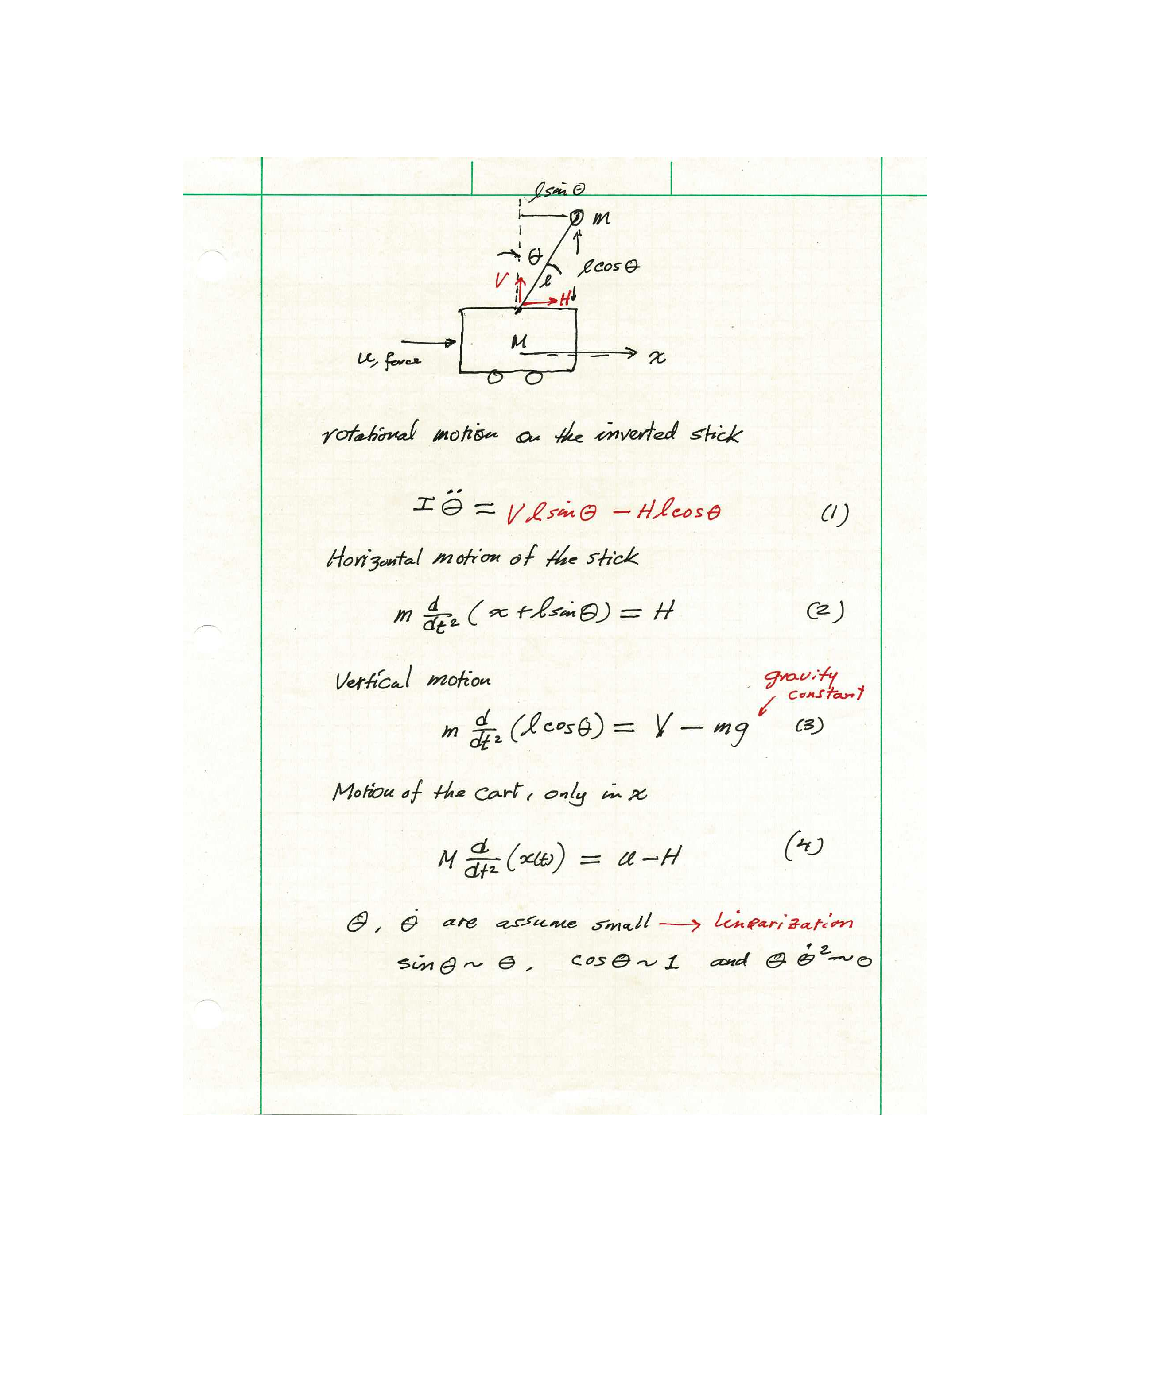 l sin θ
m
θ
l cos θ
V
l
H
M
u, force
x
rotational motion on the inverted stick
I θ̈ = V l sin θ − H l cos θ (1)
Horizontal motion of the stick
m d/dt² ( x + l sin θ ) = H (2)
Vertical motion
gravity
constant
m d/dt² ( l cos θ ) = V − mg (3)
Motion of the cart, only in x
M d/dt² ( x(t) ) = u − H (4)
θ, θ̇ are assume small → linearization
sin θ ~ θ, cos θ ~ 1 and θ θ̇² ~ 0